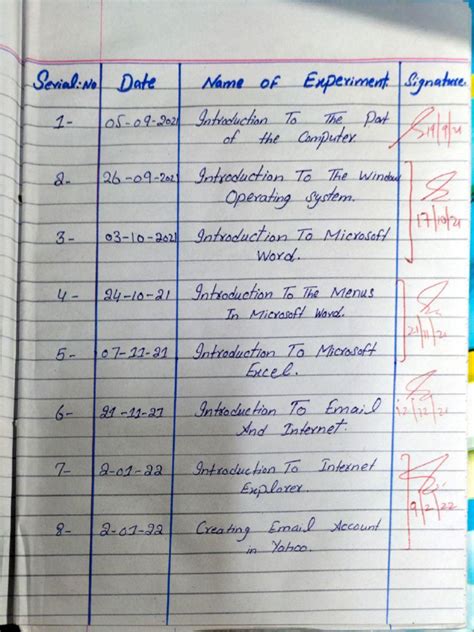 Serial:No Date Name of Experiment Signature
1- 05-09-2021 Introduction To The Part
of the Computer.
19/9/21
2- 26-09-2021 Introduction To The Window
Operating System.
17/10/21
3- 03-10-2021 Introduction To Microsoft
Word.
4- 24-10-21 Introduction To The Menus
In Microsoft Word.
21/11/21
5- 07-11-21 Introduction To Microsoft
Excel.
6- 21-11-21 Introduction To Email
And Internet.
12/12/21
7- 2-01-22 Introduction To Internet
Explorer.
9/2/22
8- 2-01-22 Creating Email Account
in Yahoo.